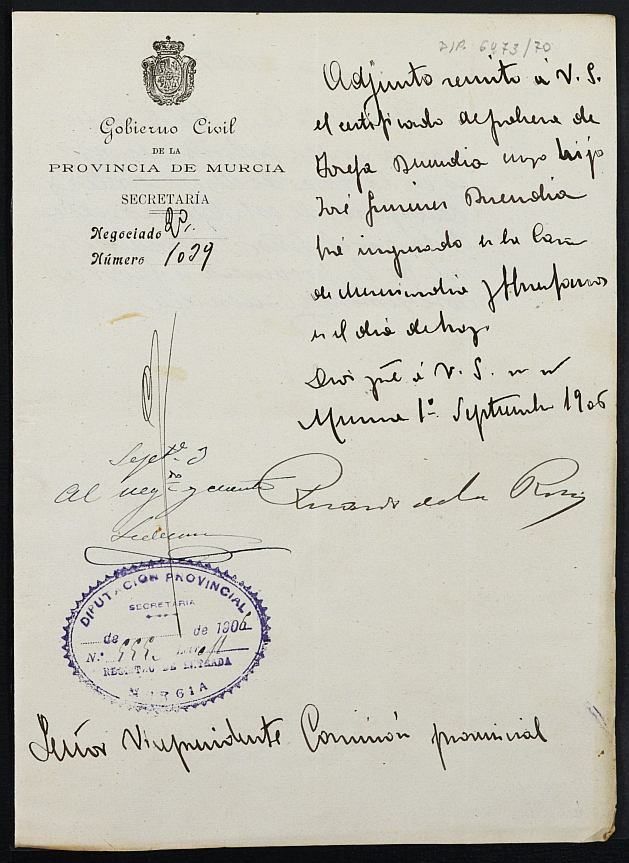 DIP. 6473/70
Gobierno Civil
DE LA
PROVINCIA DE MURCIA
SECRETARÍA
Negociado 2º.
Número 1039
Adjunto remito á V. S.
el certificado de pobreza de
Josefa Buendia cuyo hijo
José Jimenez Buendia
fué ingresado en la Casa
de Misericordia y Huerfanos
en el dia de hoy.
Dios gue á V. S.
Murcia 1º Septiembre 1906
Septe. 3
Al negdo y cuenta
DIPUTACIÓN PROVINCIAL
SECRETARIA
de de 1906
N.º
REGISTRO DE ENTRADA
MURCIA
Señor Vicepresidente Comisión provincial